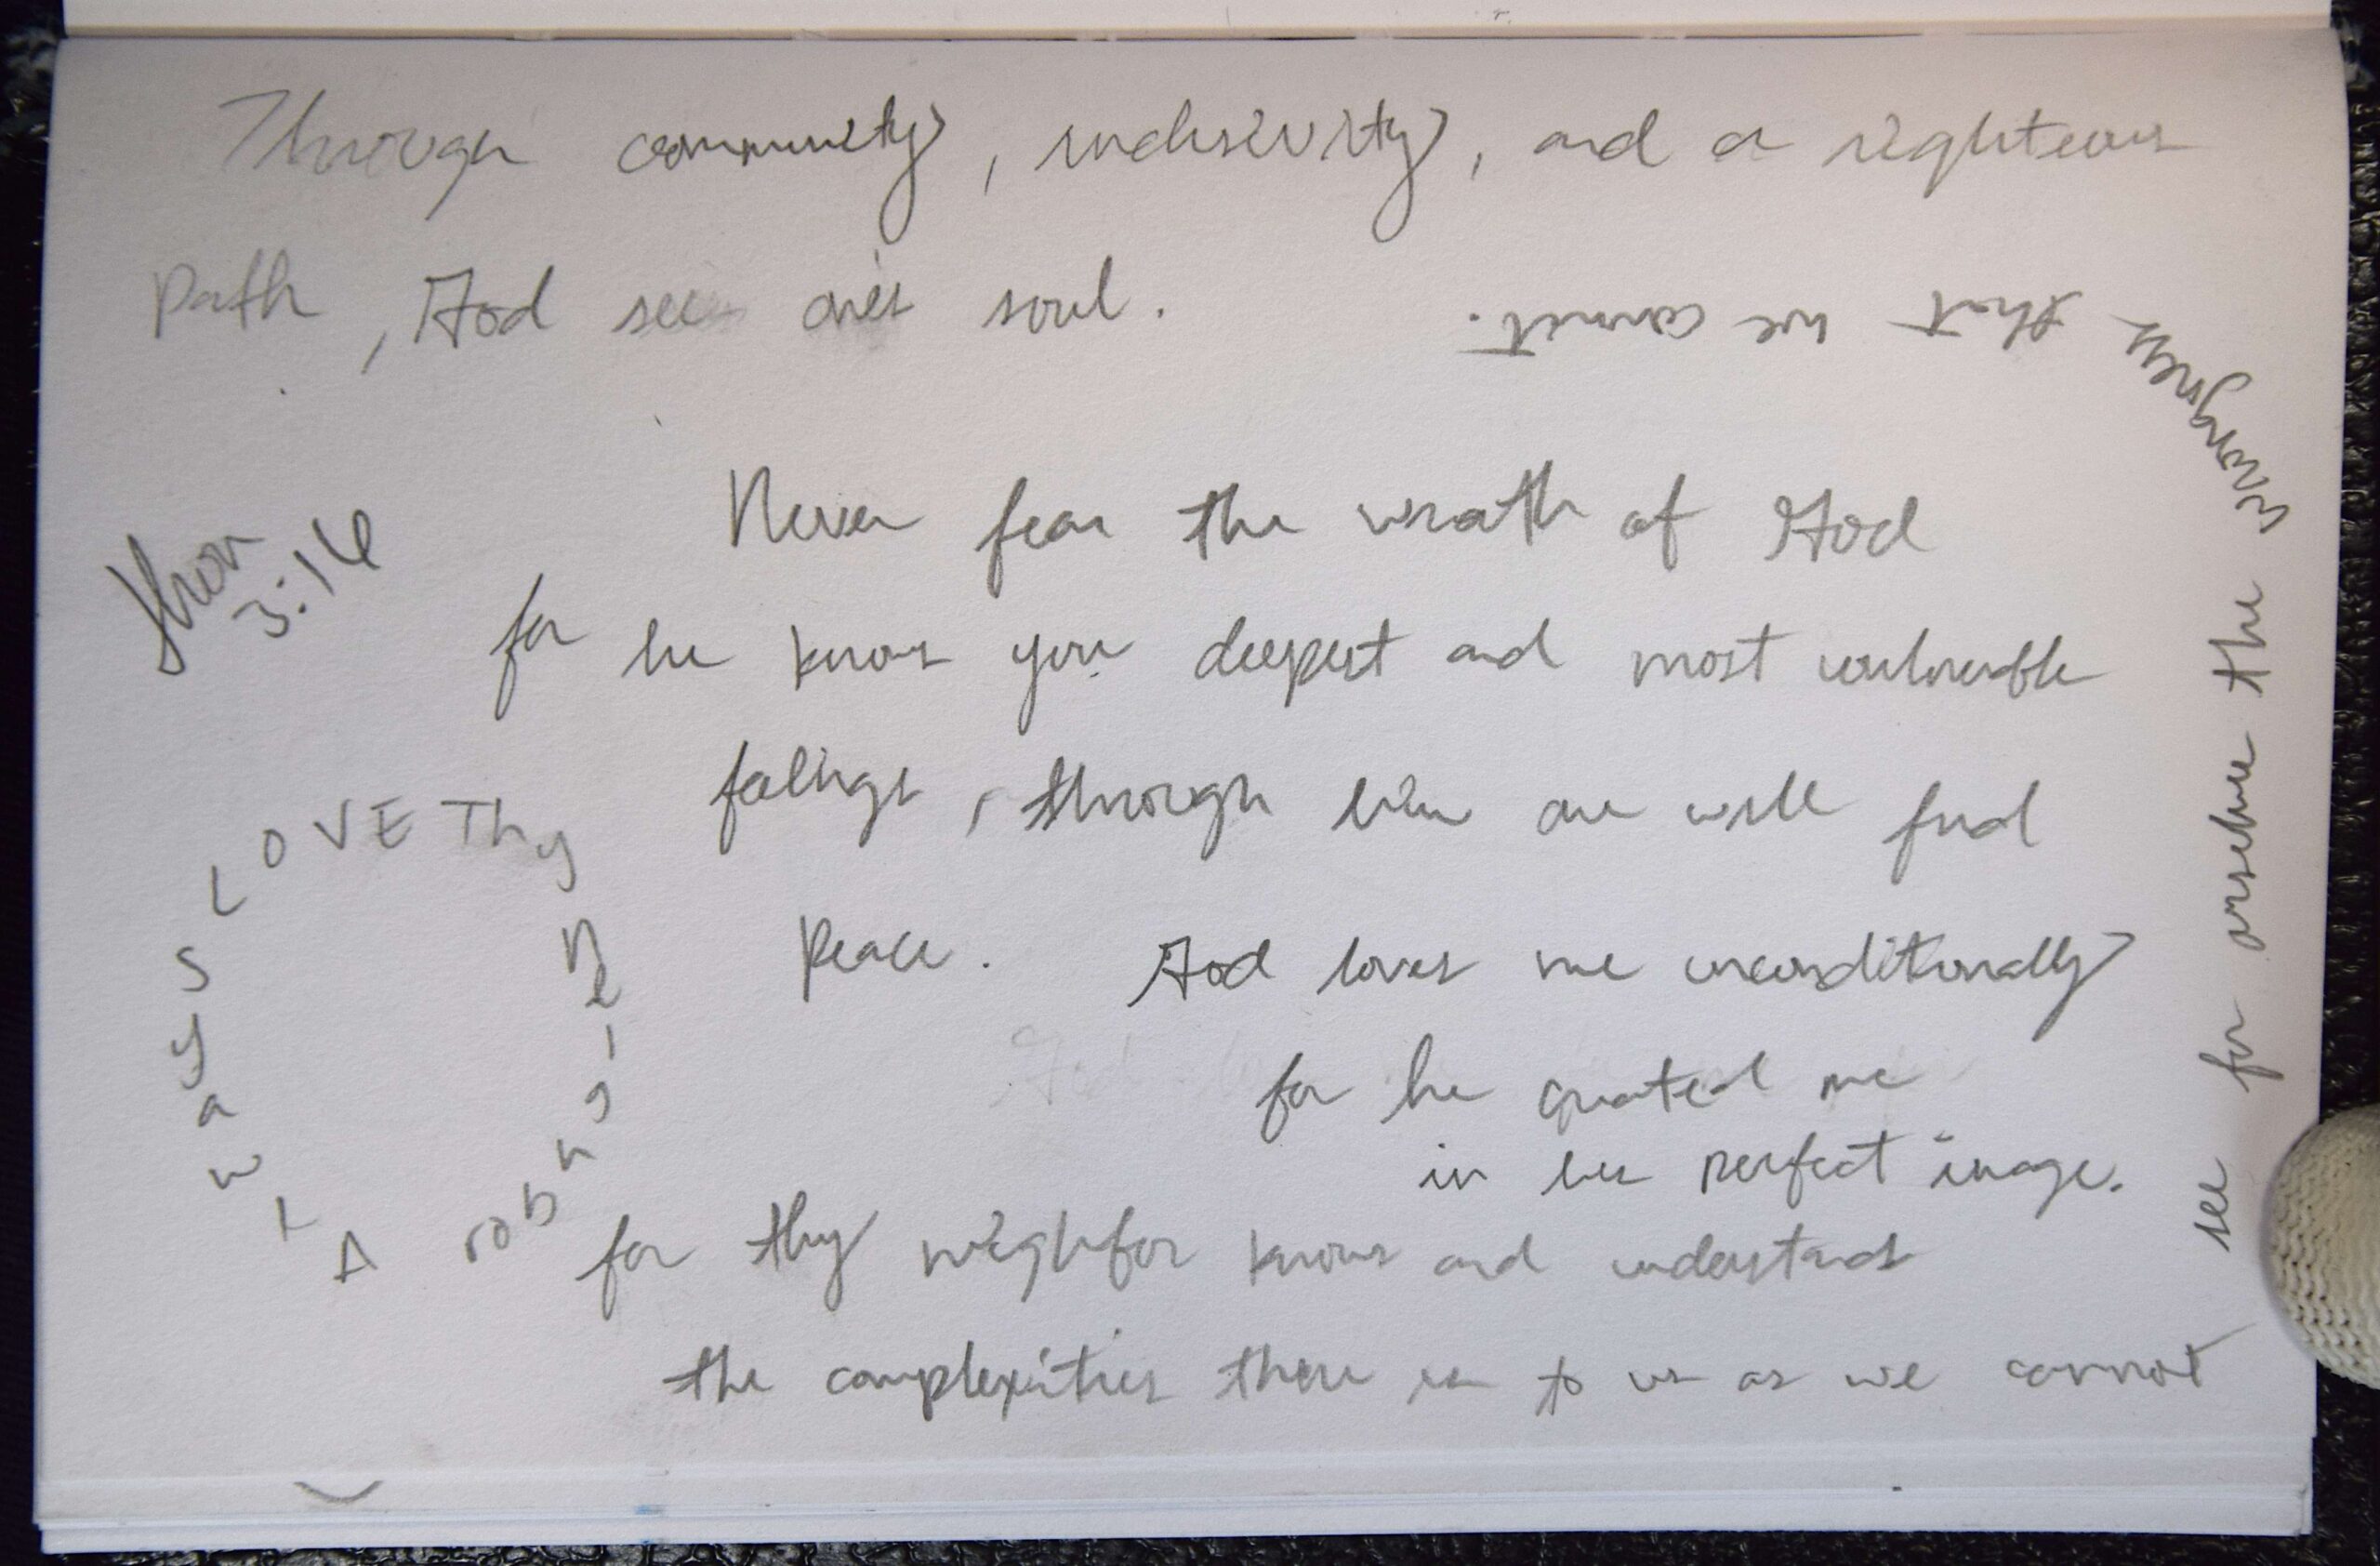 Through community, inclusivity, and a righteous
Path, God sees ones soul.
Never fear the wrath of God
for he knows you deepest and most vulnerable
feelings, through him one will find
Peace. God loves me unconditionally
for he created me
in his perfect image.
for thy neighbor knows and understands
the complexities there is to us as we cannot
see for ourselves the
that we cannot.
3:16
Always LOVE Thy neighbor